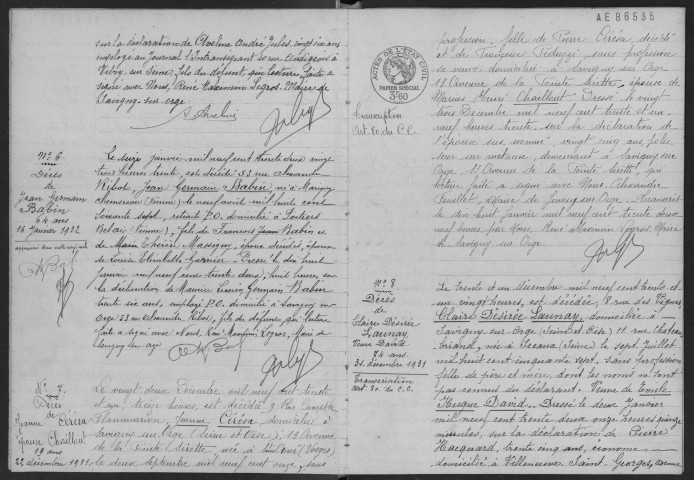 sur la déclaration de Aveline André Jules, vingt six ans
employé au Journal l'Intransigeant
Vitry sur Seine, fils du défunt, qui lecture faite a
signé avec Nous, René Maximin Legros, Maire de
Savigny-sur-Orge.
A. Aveline
N° 6
Décès
de
Jean Germain
Babin
64 ans
16 janvier 1932
Le seize janvier mil neuf cent trente deux vingt
trois heures trente, est décédé 53 rue Amante
Ribot, Jean Germain Babin né à
(Vienne) le neuf avril mil huit cent
soixante sept, retraité P.O. domicilié à Poitiers
(Vienne), fils de François Jean Babin et
de Marie Thérèse Massigny, époux décédés, époux
de Louise Elisabeth Garnier. Dressé le dix huit
janvier mil neuf cent trente deux, huit heures, sur
la déclaration de Maurice Germain Babin
trente six ans, employé P.O. domicilié à Savigny sur
Orge 53 rue Amante Ribot, fils du défunt, qui lecture
faite a signé avec Nous, René Maximin Legros, Maire de
Savigny-sur-Orge.
N° 7.
Décès
de
Jeanne Cérésa
épouse Chaillout
19 ans
22 décembre 1931
Le vingt deux Décembre mil neuf cent trente
et un heures, est décédée 9 Rue Camille
Flammarion, Jeanne Cérésa domiciliée à
Savigny sur Orge (Seine et Oise), 18 Avenue
de la née à (Vosges)
le deux Septembre mil neuf cent onze, sans
AE86535
ACTES DE L'ÉTAT CIVIL
PAPIER SPÉCIAL
3F60
profession, fille de Pierre Cérésa, décédé
et de Françoise Peduzzi, sans profession
sa veuve domiciliée à Savigny sur Orge
18 Avenue de la épouse de
Marius Henri Chaillout. Dressé le vingt
trois Décembre mil neuf cent trente et un
neuf heures trente, sur la déclaration de
l'époux sus nommé, vingt cinq ans,
sur métaux, demeurant à Savigny sur
Orge, 18 Avenue de la qui
lecture faite a signé avec Nous, Alexandre
Maire de Juvisy sur Orge. Transcrit
le dix huit janvier mil neuf cent trente deux
neuf heures, par Nous, René Maximin Legros Maire
de Savigny sur Orge.
Transcription
Art. 80 du C.C.
N° 8
Décès
de
Claire Désirée
Launay
Veuve David
74 ans
31 décembre 1931
Transcription
Art. 80. du C.C.
Le trente et un décembre mil neuf cent trente et
un vingt heures, est décédée, 8 rue des Vignes
Claire Désirée Launay, domiciliée à
Savigny-sur-Orge (Seine et Oise) 11 rue Chateau
briand, née à Sceaux (Seine) le sept juillet
mil huit cent cinquante sept, sans profession
fille de père et mère dont les noms ne sont
pas connus du déclarant. Veuve de Emile
David. Dressé le deux Janvier
mil neuf cent trente deux onze heures quinze
minutes, sur la déclaration de Pierre
Hacquard, trente cinq ans, économe
domicilié à Villeneuve Saint-Georges,